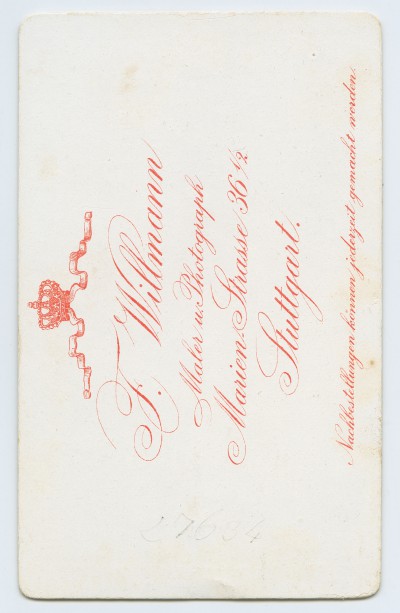 F. Willmann
Maler u. Photograph
Marien-Strasse 36 1/2
Stuttgart.
Nachbestellungen können jederzeit gemacht werden.
27634